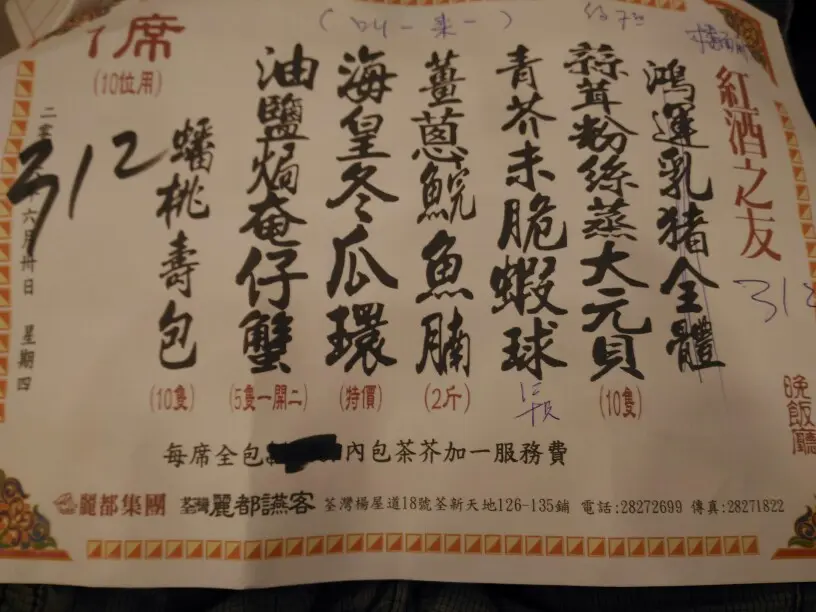 紅酒之友
鴻運乳豬全體
蒜茸粉絲蒸大元貝
(10隻)
青芥末脆蝦球
薑蔥鯇魚腩
(2斤)
海皇冬瓜環
(特價)
油鹽焗奄仔蟹
(5隻一開二)
蟠桃壽包
(10隻)
1席
(10位用)
六月卅日 星期四
312
312
晚飯廳
每席全包
內包茶芥加一服務費
麗都集團 荃灣麗都讌客 荃灣楊屋道18號荃新天地126-135鋪 電話:28272699 傳真:28271822